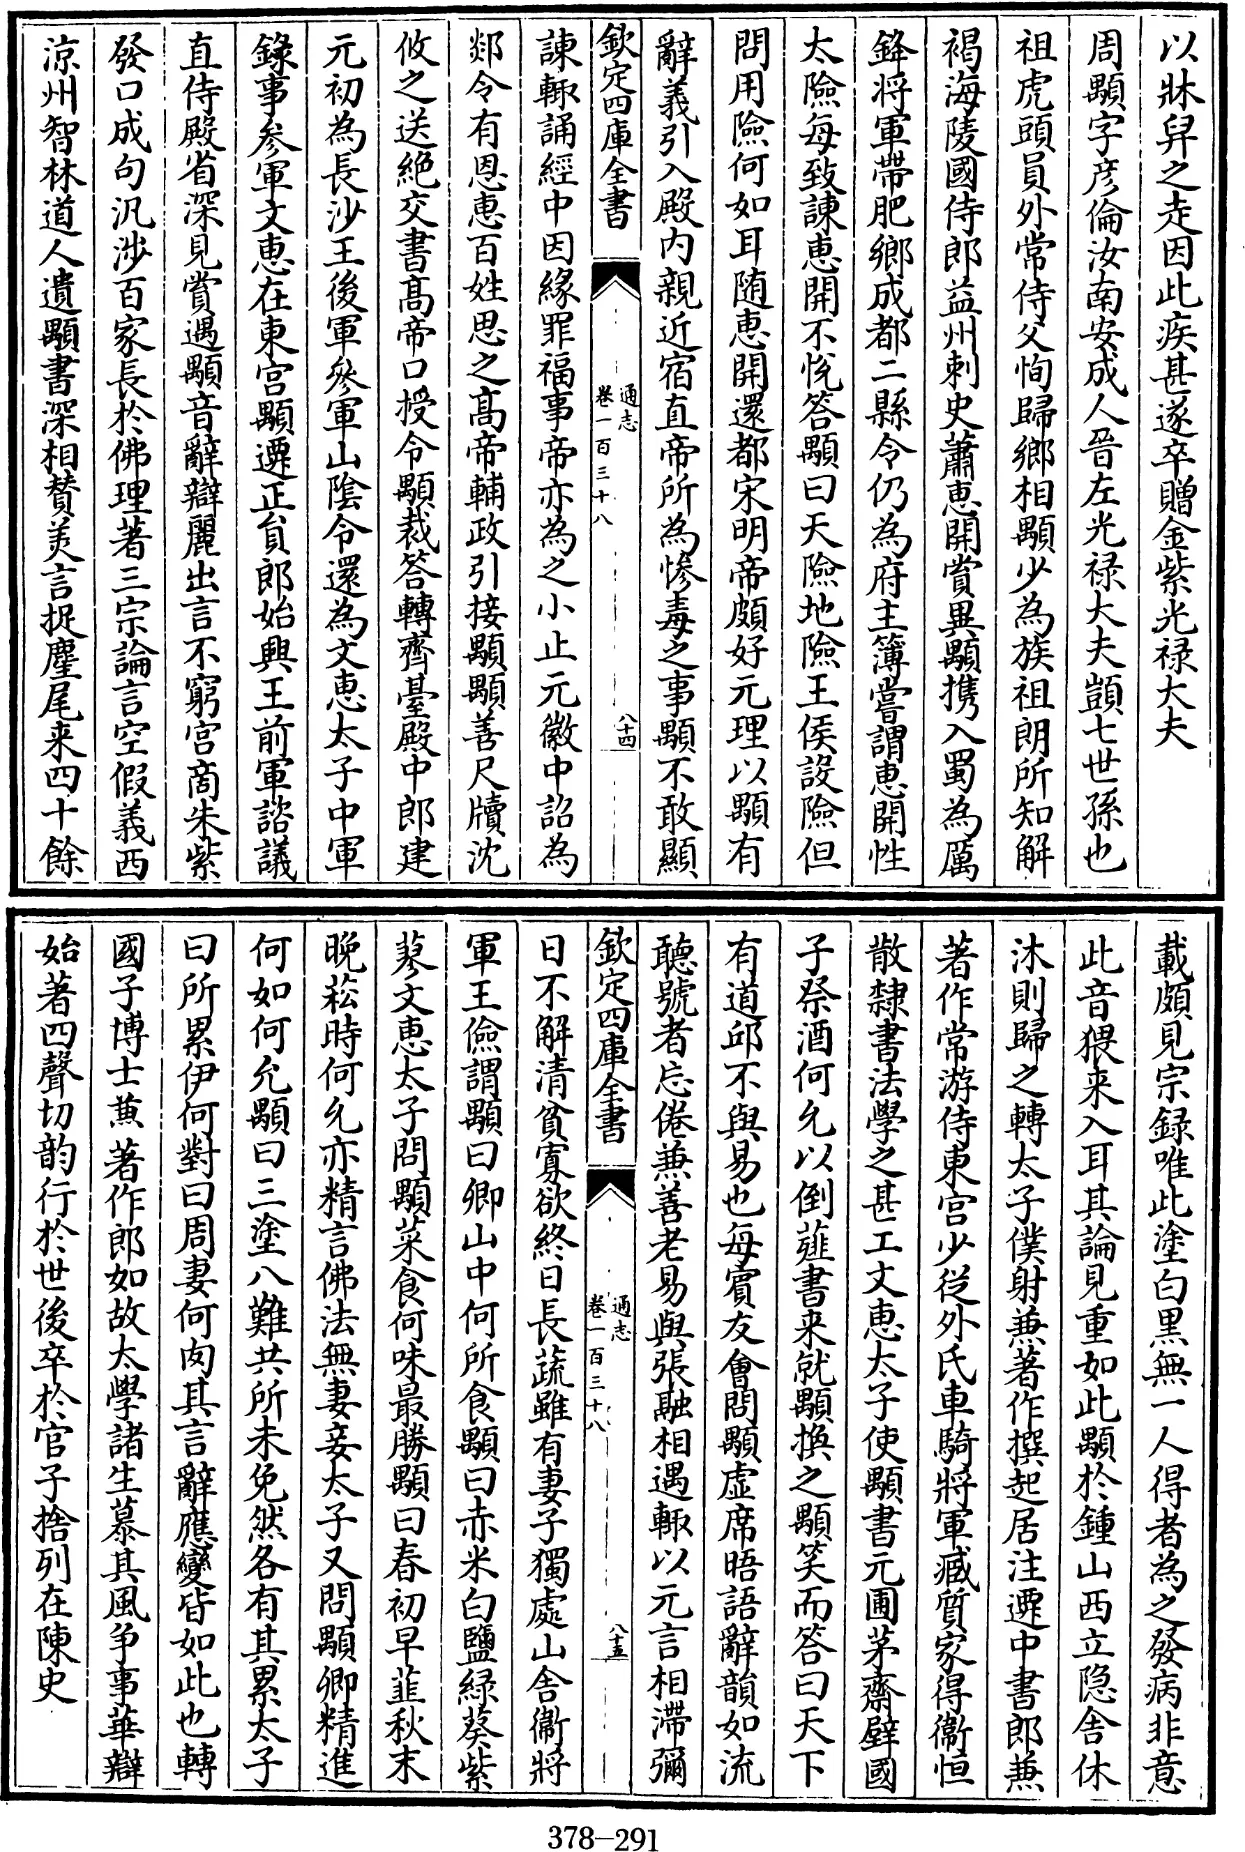 以牀舁之走因此疾甚遂卒贈金紫光禄大夫
周顒字彦倫汝南安成人晉左光禄大夫顗七世孫也
祖虎頭員外常侍父恂歸鄉相顒少為族祖朗所知解
褐海陵國侍郎益州刺史蕭惠開賞異顒携入蜀為厲
鋒將軍帶肥鄉成都二縣令仍為府主簿嘗謂惠開性
太險每致諫惠開不悅答顒曰天險地險王侯設險但
問用險何如耳隨惠開還都宋明帝頗好元理以顒有
辭義引入殿内親近宿直帝所為慘毒之事顒不敢顯
欽定四庫全書
通志
卷一百三十八
八十四
諫輒誦經中因緣罪福事帝亦為之小止元徽中詔為
剡令有恩惠百姓思之髙帝輔政引接顒顒善尺牘沈
攸之送絶交書髙帝口授令顒裁答轉齊臺殿中郎建
元初為長沙王後軍參軍山陰令還為文惠太子中軍
錄事參軍文惠在東宫顒遷正貟郎始興王前軍諮議
直侍殿省深見賞遇顒音辭辯麗出言不窮宫商朱紫
發口成句汎涉百家長於佛理著三宗論言空假義西
涼州智林道人遺顒書深相贊美言捉麈尾来四十餘
載頗見宗録唯此塗白黒無一人得者為之發病非意
此音猥来入耳其論見重如此顒於鍾山西立隐舍休
沐則歸之轉太子僕射兼著作撰起居注遷中書郎兼
著作常游侍東宫少従外氏車騎將軍臧質家得衞恒
散隸書法學之甚工文惠太子使顒書元圃茅齋壁國
子祭酒何允以倒薤書来就顒換之顒笑而答曰天下
有道邱不與易也每賓友會問顒虚席晤語辭韻如流
聽號者忘倦兼善老易與張融相遇輒以元言相滯彌
欽定四庫全書
通志
卷一百三十八
八十五
日不解清貧寡欲終日長蔬雖有妻子獨處山舍衞將
軍王儉謂顒曰卿山中何所食顒曰赤米白鹽緑葵紫
蓼文惠太子問顒菜食何味最勝顒曰春初早韮秋末
晚菘時何允亦精言佛法無妻妾太子又問顒卿精進
何如何允顒曰三塗八難共所未免然各有其累太子
曰所累伊何對曰周妻何肉其言辭應變皆如此也轉
國子博士兼著作郎如故太學諸生慕其風争事華辯
始著四聲切韵行於世後卒於官子捨列在陳史
378-291